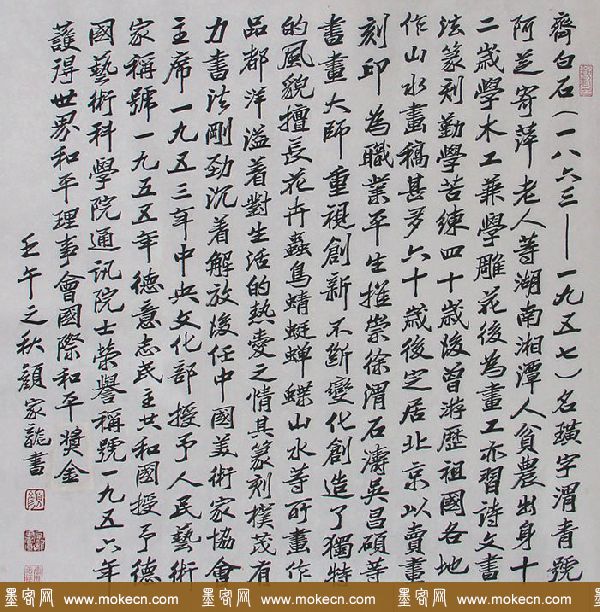 齊白石(一八六三—一九五七)名璜字渭青號
阿芝寄萍老人等湖南湘潭人貧農出身十
二歲學木工兼學雕花後為畫工亦習詩文書
法篆刻勤學苦練四十歲後曾游歷祖國名地
作山水畫稿甚多六十歲後定居北京以賣畫
刻印為職業平生推崇徐渭石濤吳昌碩等
書畫大師重視創新不斷變化創造了獨特
的風貌擅長花卉蟲鳥蜻蜓蟬蝶山水等所畫作
品都洋溢着對生活的熱愛之情其篆刻樸茂有
力書法剛勁沉着解放後任中國美術家協會
主席一九五三年中央文化部授予人民藝術
家稱號一九五五年德意志民主共和國授予德
國藝術科學院通訊院士榮譽稱號一九五六年
護得世界和平理事會國際和平獎金
壬午之秋顏家龍書
墨客网 www.mokecn.com 墨客网 www.mokecn.com 墨客网 www.mokecn.com